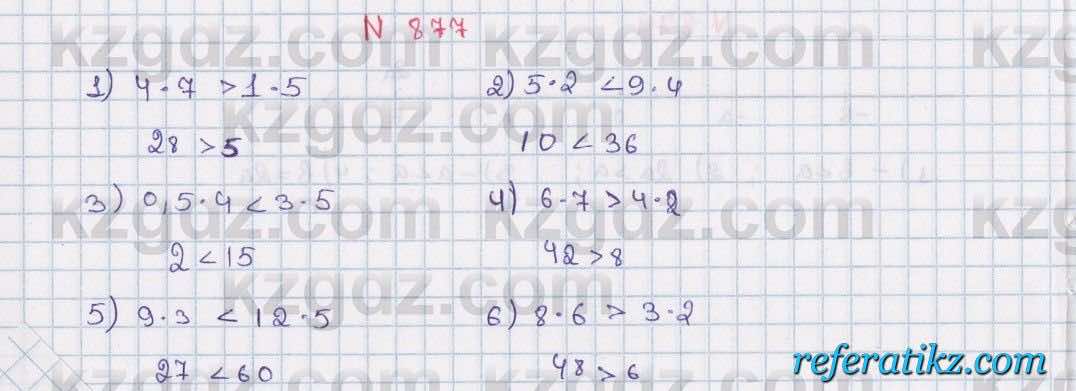 N 877
1) 4·7 > 1·5 2) 5·2 < 9·4
28 > 5 10 < 36
3) 0,5·4 < 3·5 4) 6·7 > 4·2
2 < 15 42 > 8
5) 9·3 < 12·5 6) 8·6 > 3·2
27 < 60 48 > 6
kzgdz.com
referatikz.com